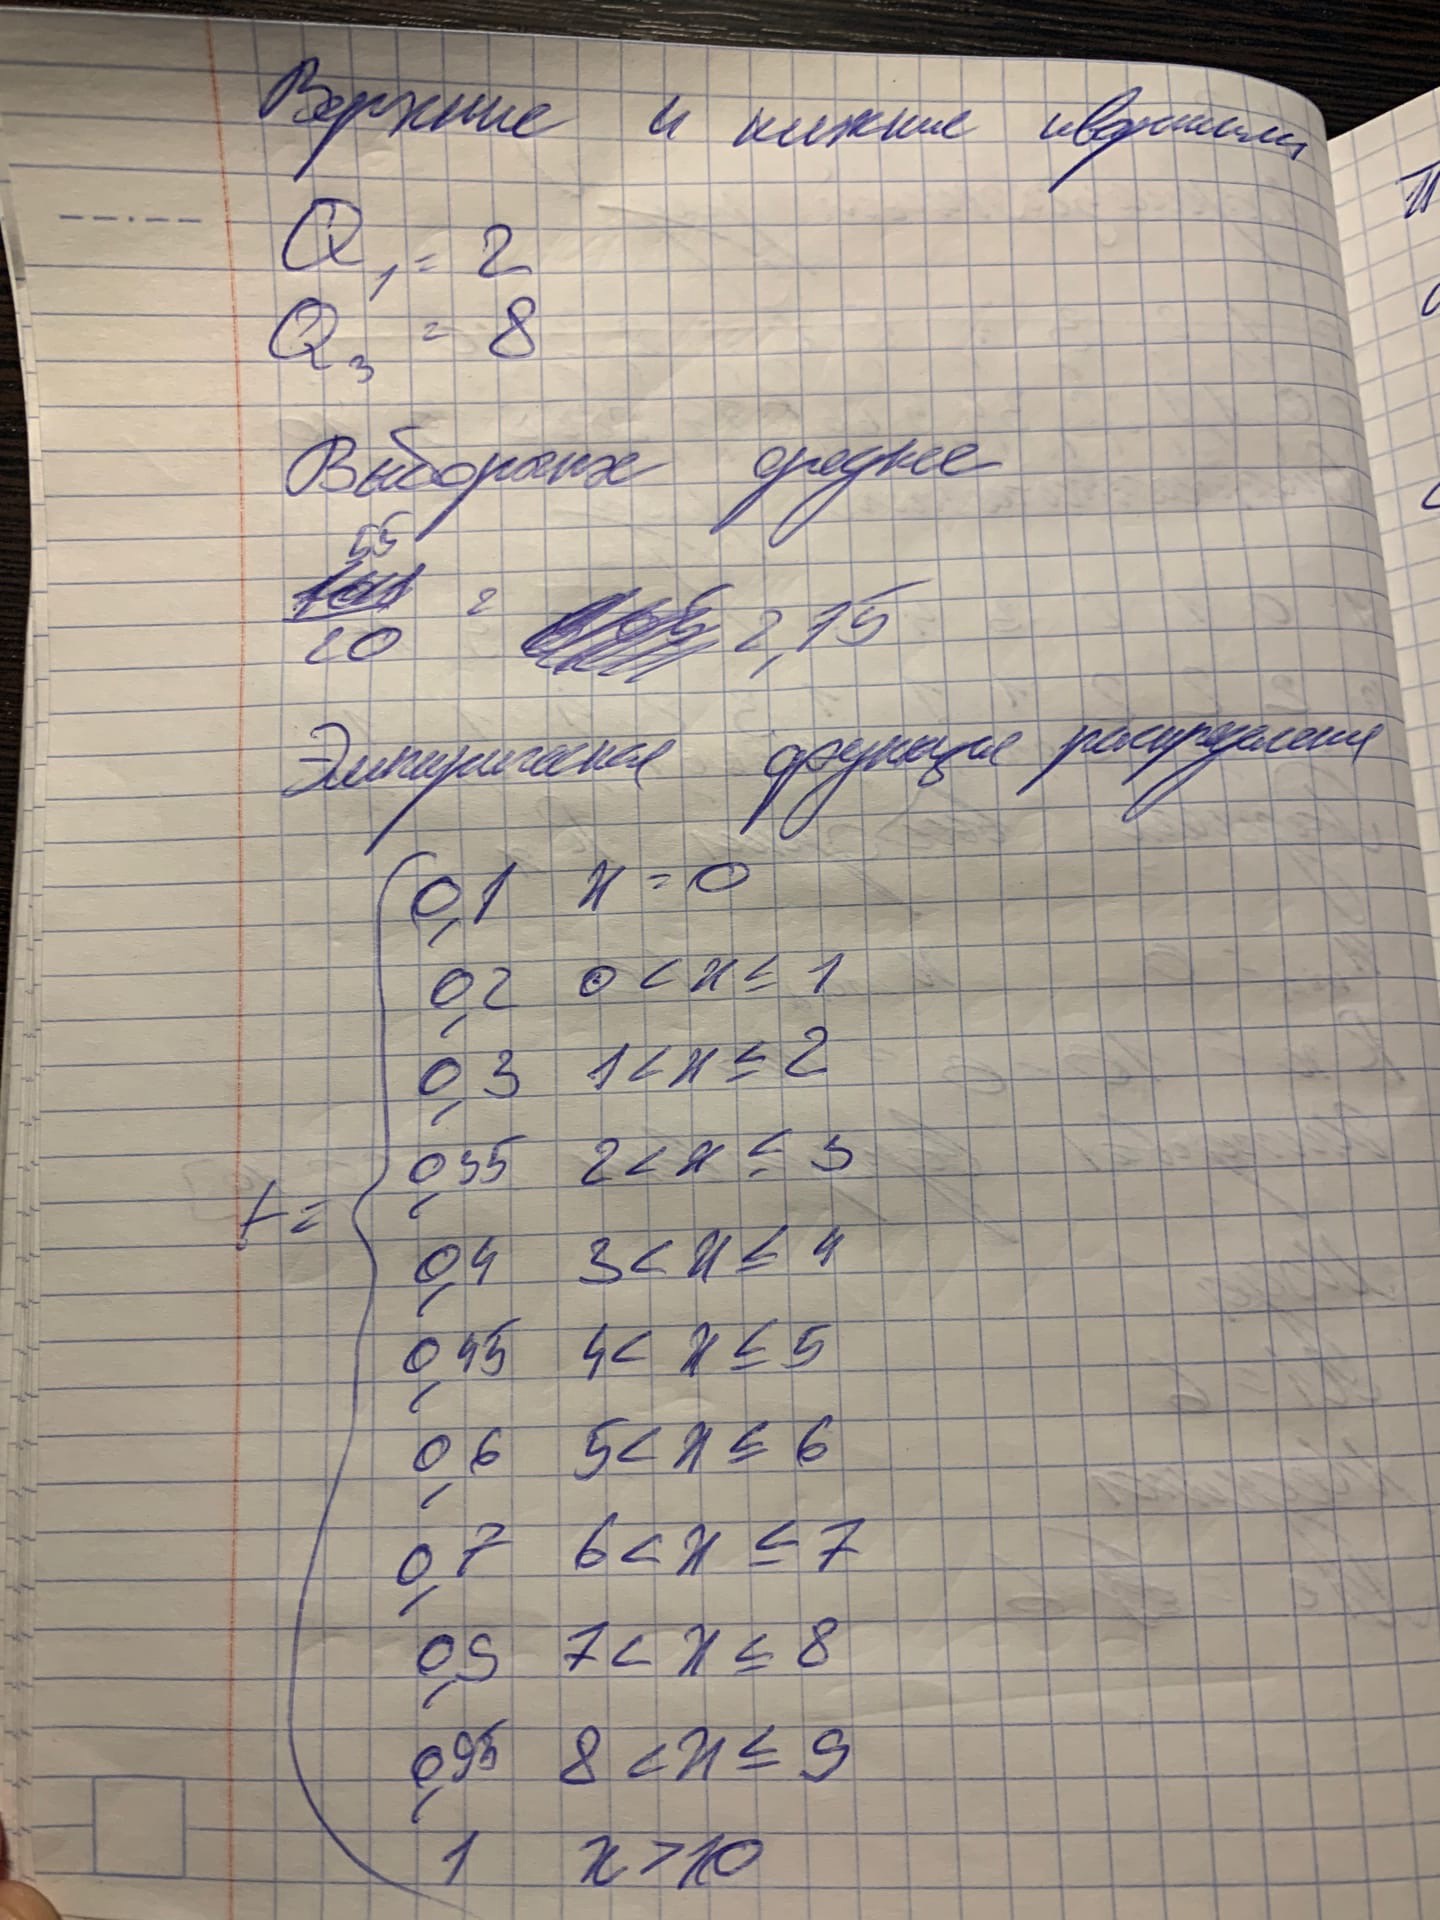 Верхние и нижние квартили
Q₁ = 2
Q₃ = 8
Выборочное среднее
55
20 = 2,75
Эмпирическая функция распределения
0,1 x = 0
0,2 0 < x ≤ 1
0,3 1 < x ≤ 2
0,35 2 < x ≤ 3
F = 0,4 3 < x ≤ 4
0,45 4 < x ≤ 5
0,6 5 < x ≤ 6
0,7 6 < x ≤ 7
0,9 7 < x ≤ 8
0,95 8 < x ≤ 9
1 x > 10